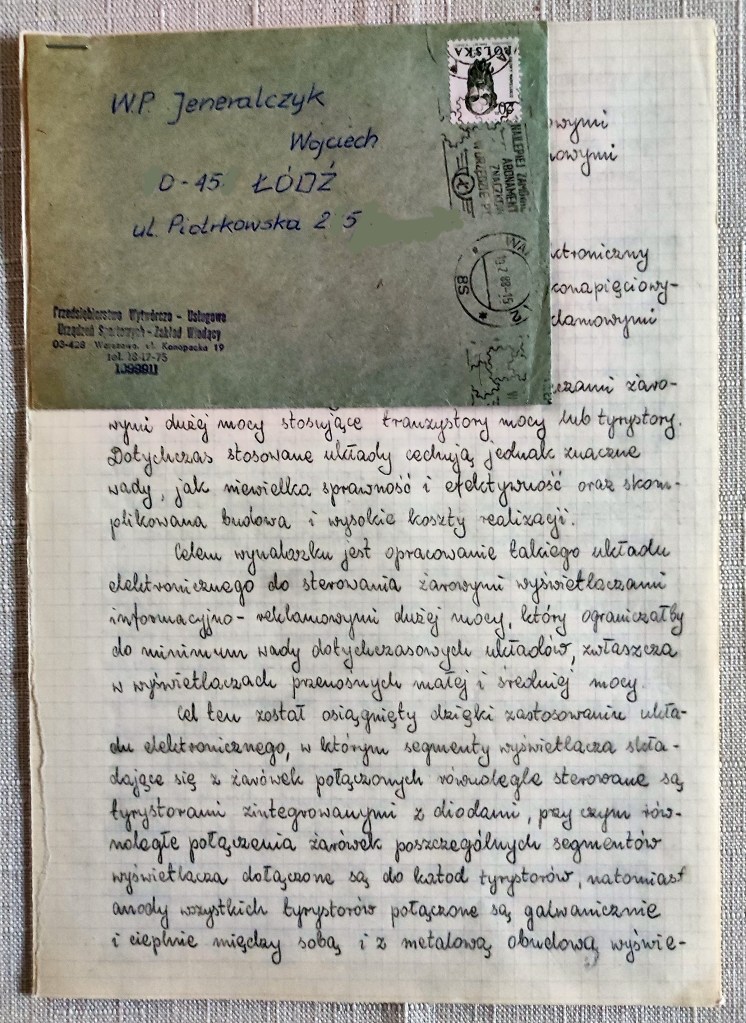 W.P. Jeneralczyk
Wojciech
0-45 ŁÓDŹ
ul. Piotrkowska 2 5
POLSKA
NAJLEPIEJ ZAMÓWIĆ
ABONAMENT
ZNACZKÓW
W URZĘDZIE
Przedsiębiorstwo Wytwórczo - Usługowe
Urządzeń Sportowych - Zakład Wiodący
03-428 Warszawa, ul. Konopacka 19
tel. 18-17-75
owymi
owymi
ktroniczny
konapięciowy-
klamowymi
czami żaro-
wymi dużej mocy stosujące tranzystory mocy lub tyrystory.
Dotychczas stosowane układy cechują jednak znaczne
wady, jak niewielka sprawność i efektywność oraz skom-
plikowana budowa i wysokie koszty realizacji.
Celem wynalazku jest opracowanie takiego układu
elektronicznego do sterowania żarowymi wyświetlaczami
informacyjno-reklamowymi dużej mocy, który ograniczałby
do minimum wady dotychczasowych układów, zwłaszcza
w wyświetlaczach przenośnych małej i średniej mocy.
Cel ten został osiągnięty dzięki zastosowaniu ukła-
du elektronicznego, w którym segmenty wyświetlacza skła-
dające się z żarówek połączonych równolegle sterowane są
tyrystorami zintegrowanymi z diodami, przy czym rów-
noległe połączenia żarówek poszczególnych segmentów
wyświetlacza dołączone są do katod tyrystorów, natomiast
anody wszystkich tyrystorów połączone są galwanicznie
i cieplnie między sobą i z metalową obudową wyświe-